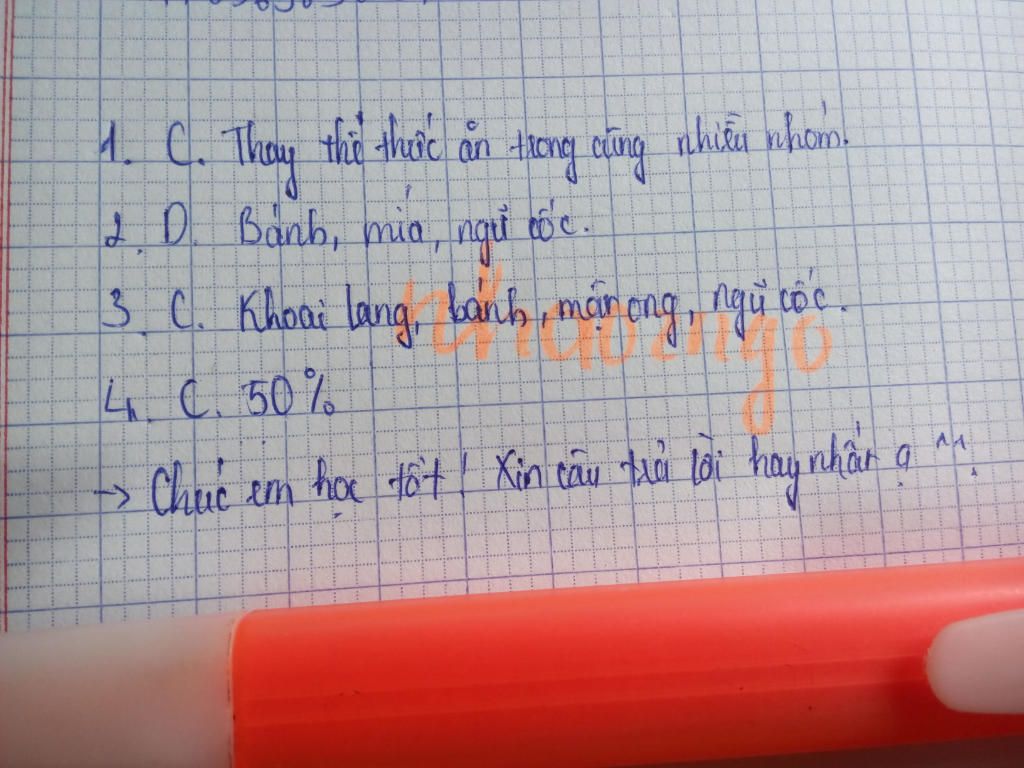 1. C. Thay thế thức ăn trong cùng nhiều nhóm.
2. D. Bánh, mía, ngũ cốc.
3. C. Khoai lang, bánh, mật ong, ngũ cốc.
4. C. 50%
→ Chúc em học tốt! Xin câu trả lời hay nhất ạ ^^.